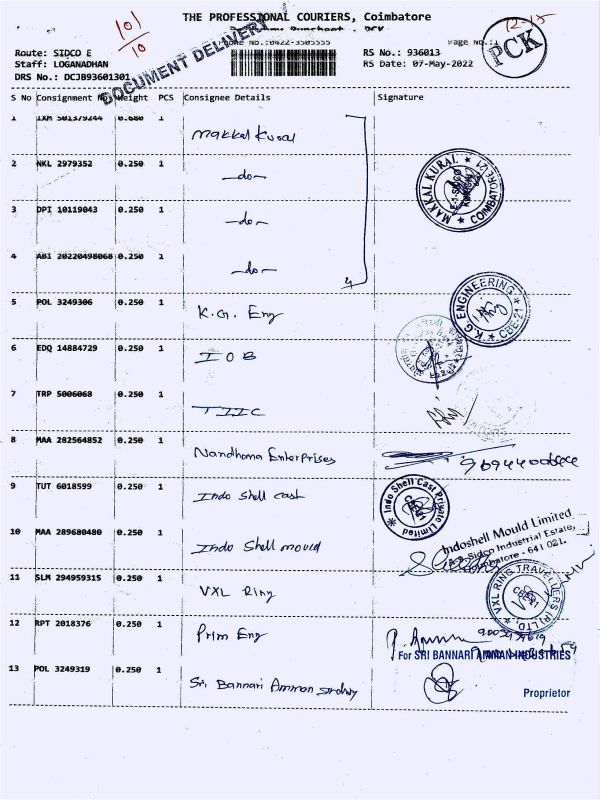 101
10
12-15
THE PROFESSIONAL COURIERS, Coimbatore
PCK
DOCUMENT DELIVERY
Phone No.:0422-3505555
Page No.:1
Route: SIDCO E
RS No.: 936013
Staff: LOGANADHAN
RS Date: 07-May-2022
DRS No.: DCJB93601301
S No Consignment No Weight PCS Consignee Details Signature
1 IXM 501379244 0.680 1 Makkal Kural
2 NKL 2979352 0.250 1 -do-
MAKKAL KURAL
COIMBATORE 21
3 DPI 10119043 0.250 1 -do-
4 ABI 20220498068 0.250 1 -do-
4
5 POL 3249306 0.250 1 K.G. Eng
K G ENGINEERING
CBE-21
6 EDQ 14884729 0.250 1 IOB
7 TRP 5006068 0.250 1 TIIC
8 MAA 282564852 0.250 1 Nandhama Enterprises
9 TUT 6018599 0.250 1 Indo Shell cast
Indo Shell Cast Private Limited
10 MAA 289680480 0.250 1 Indo Shell mould
Indoshell Mould Limited
Sidco Industrial Estate,
Coimbatore - 641 021.
11 SLM 294959315 0.250 1 VXL Ring
VXL RING TRAVELLERS (P) LTD.
12 RPT 2018376 0.250 1 Prim Eng
For SRI BANNARI AMMAN INDUSTRIES
13 POL 3249319 0.250 1 Sri Bannari Amman
Proprietor